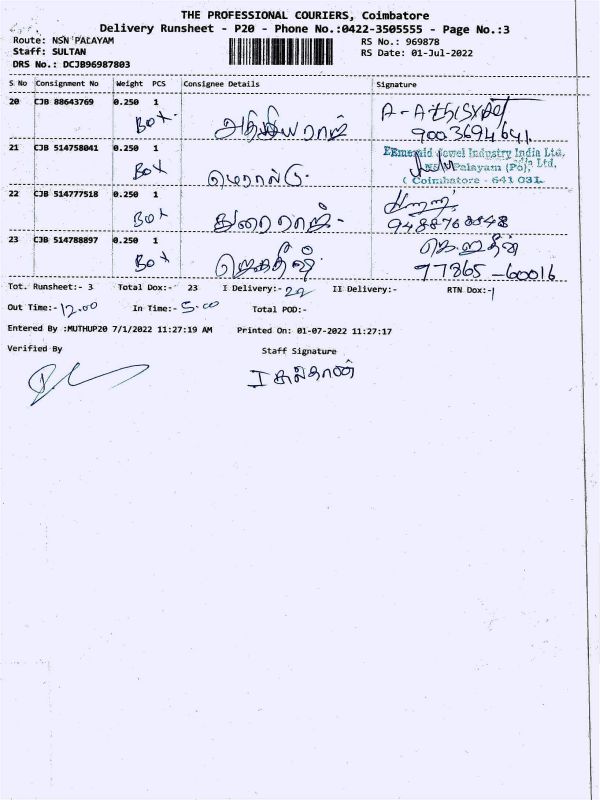 THE PROFESSIONAL COURIERS, Coimbatore
Delivery Runsheet - P20 - Phone No.:0422-3505555 - Page No.:3
Route: NSN PALAYAM
RS No.: 969878
Staff: SULTAN
RS Date: 01-Jul-2022
DRS No.: DCJB96987803
S No Consignment No Weight PCS Consignee Details Signature
20 CJB 88643769 0.250 1
Box அதிவீயராஜ்
9003694641
21 CJB 514758041 0.250 1
Box மெரால்டு
EEmerald Jewel Industry India Ltd,
Palayam (Po),
Coimbatore - 641 031.
22 CJB 514777518 0.250 1
Box துரைராஜ் -
23 CJB 514788897 0.250 1
Box ஜெகதீஷ்
77865-60016
Tot. Runsheet:- 3 Total Dox:- 23 I Delivery:- 22 II Delivery:- RTN Dox:-1
Out Time:- 12.00 In Time:- 5.00 Total POD:-
Entered By :MUTHUP20 7/1/2022 11:27:19 AM Printed On: 01-07-2022 11:27:17
Verified By Staff Signature